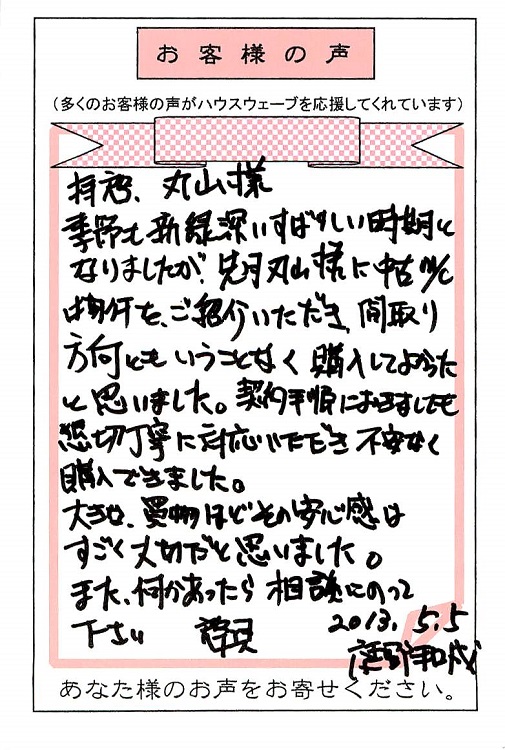 お客様の声
(多くのお客様の声がハウスウェーブを応援してくれています)
拝啓、丸山様
季節も新緑深いすばらしい時期と
なりましたが、先月丸山様に中古M/C
物件を、ご紹介いただき、間取り
方向ともいうことなく購入してよかった
と思いました。契約手順におきましても
懇切丁寧に対応いただき不安なく
購入できました。
大きな、買物ほどその安心感は
すごく大切だと思いました。
また、何かあったら相談にのって
下さい
2013.5.5
あなた様のお声をお寄せください。